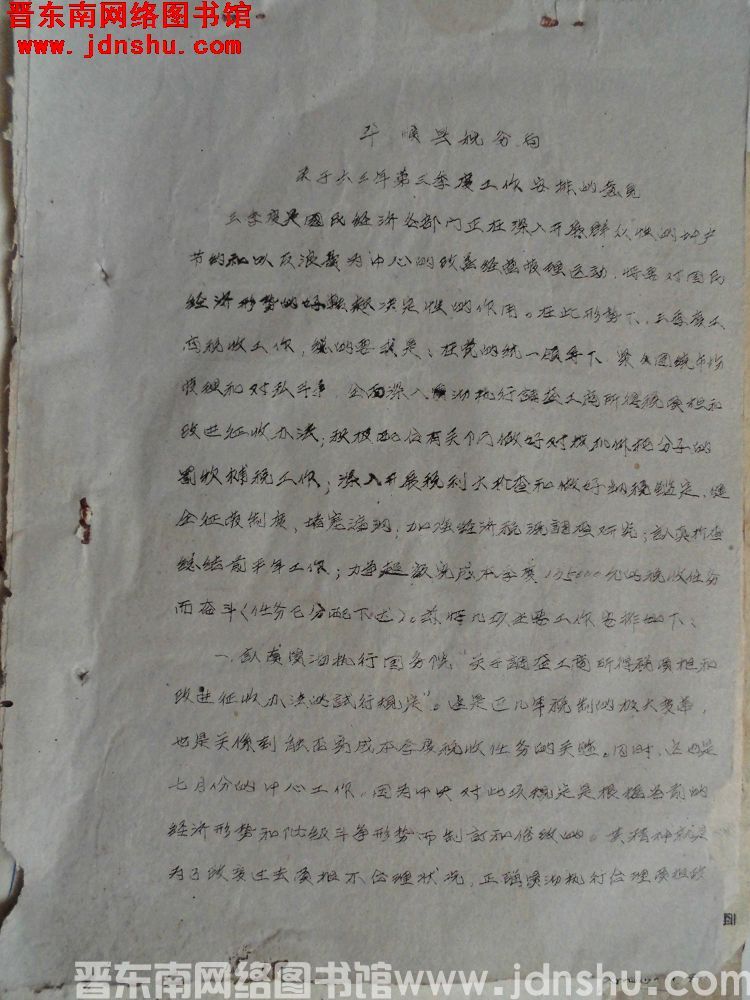 晋东南网络图书馆
www.jdnshu.com
平顺县税务局
关于六三年第三季度工作安排的意见
三季度是国民经济各部门正在深入开展群众性的增产
节约和以反浪费为中心的改善经营管理运动，将会对国民
经济形势的好转起决定性的作用。在此形势下，三季度工
商税收工作，总的要求是：在党的统一领导下，紧紧围绕市场
管理和对敌斗争，全面深入贯彻执行调整工商所得税负担和
改进征收办法；积极配合有关部门做好对投机倒把分子的
罚收补税工作；深入开展税利大检查和做好纳税鉴定，健
全征收制度，堵塞漏洞；加强经济税源调查研究；认真检查
总结前半年工作；力争超额完成本季度175000元的税收任务
而奋斗（任务已分配下达）。兹将几项主要工作安排如下：
一、认真贯彻执行国务院“关于调整工商所得税负担和
改进征收办法的试行规定”。这是近几年税制的较大变革，
也是关系到能否完成本季度税收任务的关键。同时，这也是
七月份的中心工作。因为中央对此项规定是根据当前的
经济形势和阶级斗争形势而制订和修改的。其精神就是
为了改变过去负担不合理状况，正确贯彻执行合理负担政
晋东南网络图书馆www.jdnshu.com